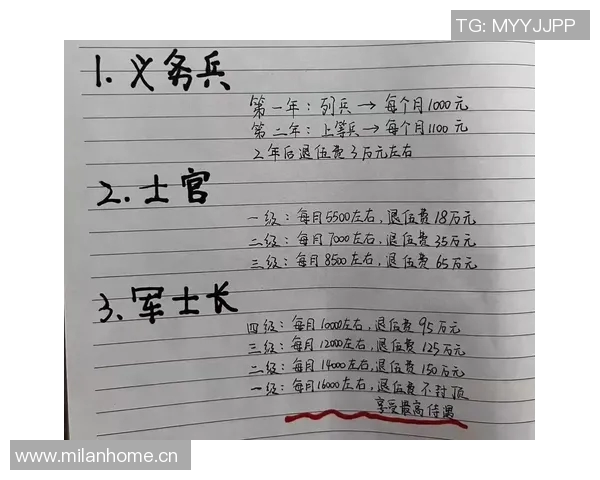 TG: MYYJJPP
1. 义务兵
第一年：列兵 → 每个月1000元
第二年：上等兵 → 每个月1100元
2年后退伍费3万元左右
2. 士官
一级：每月5500左右，退伍费18万元
二级：每月7000左右，退伍费35万元
三级：每月8500左右，退伍费65万元
3. 军士长
四级：每月10000左右，退伍费95万元
三级：每月12000左右，退伍费125万元
二级：每月14000左右，退伍费150万元
一级：每月16000左右，退伍费不封顶
享受最高待遇
www.milanhome.cn